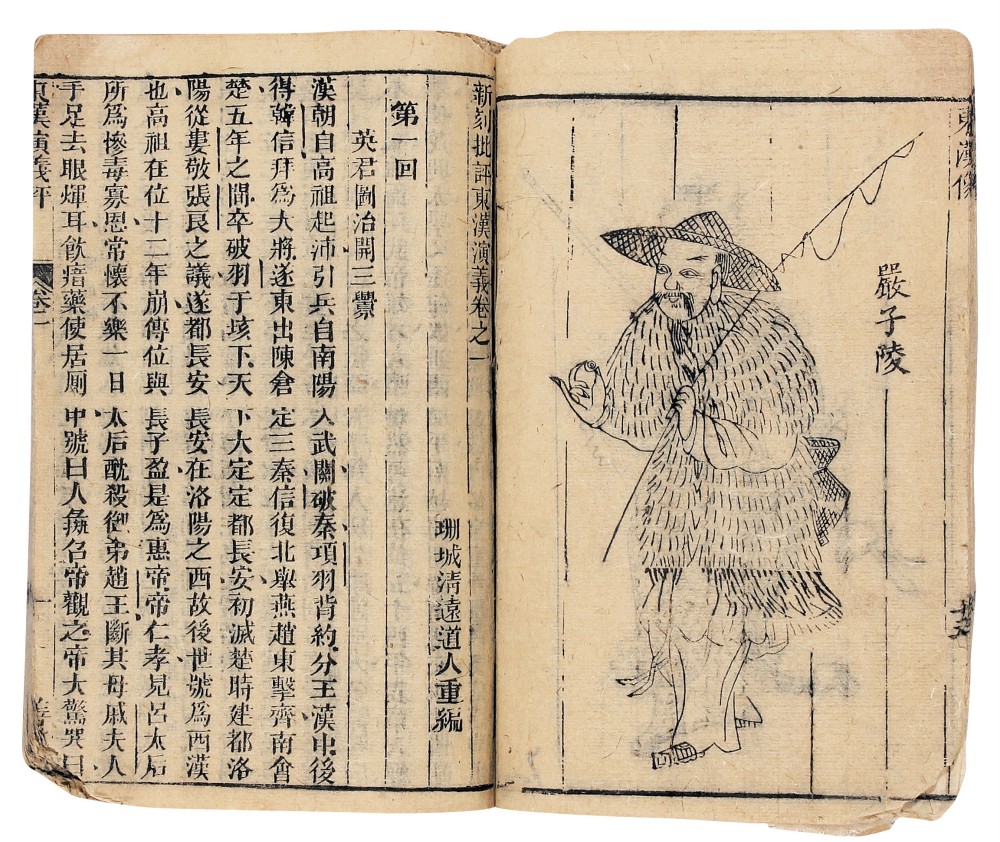 東漢像
嚴子陵
新刻批評東漢演義卷之一
珊城清遠道人重編
第一回
英君圖治開三釁
漢朝自高祖起沛引兵自南陽入武關破秦項羽背約分王漢中後
得韓信拜爲大將遂東出陳倉定三秦信復北舉燕趙東擊齊南會
楚五年之間卒破羽于垓下天下大定定都長安初滅楚時建都洛
陽從婁敬張良之議遂都長安長安在洛陽之西故後世號爲西漢
也高祖在位十二年崩傳位與長子盈是爲惠帝帝仁孝見呂太后
所爲慘毒寡恩常懷不樂一日太后酖殺御弟趙王斷其母戚夫人
手足去眼煇耳飲瘖藥使居厠中號曰人彘召帝觀之帝大驚哭曰
東漢演義評
卷一
一